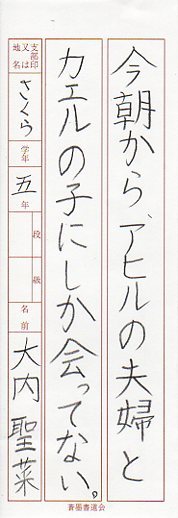 今朝から、アヒルの夫婦と
カエルの子にしか会ってない。
支部印
又は
地名
さくら
学年
五年
段
級
名前
大内聖菜
書墨書道会